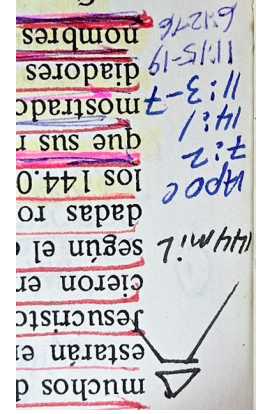 muchos d
estarán e
Jesucristo
cieron en
según el
dadas ro
los 144.0
que sus
mostrado
diadores
nombres
144 mil
Apoc
7:2
14:1
11:3-7
11:15-19